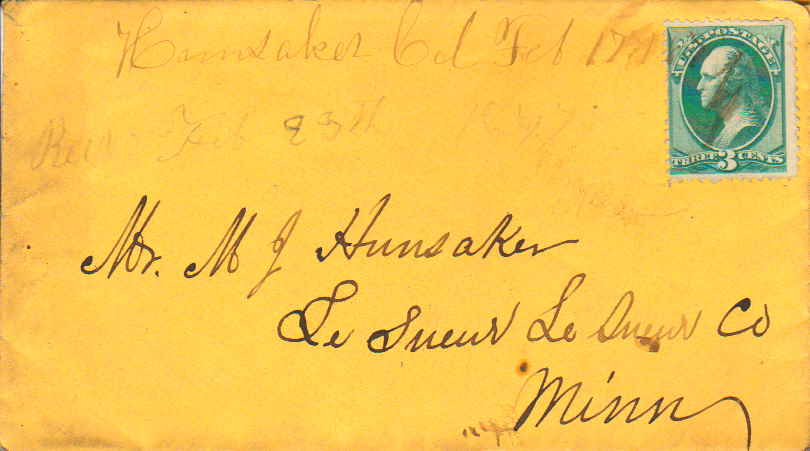 Hunsaker Cal Feb 17
U.S. POSTAGE
THREE 3 CENTS
Feb 23th
Mr. M J Hunsaker
Le Sueur Le Sueur Co
Minn